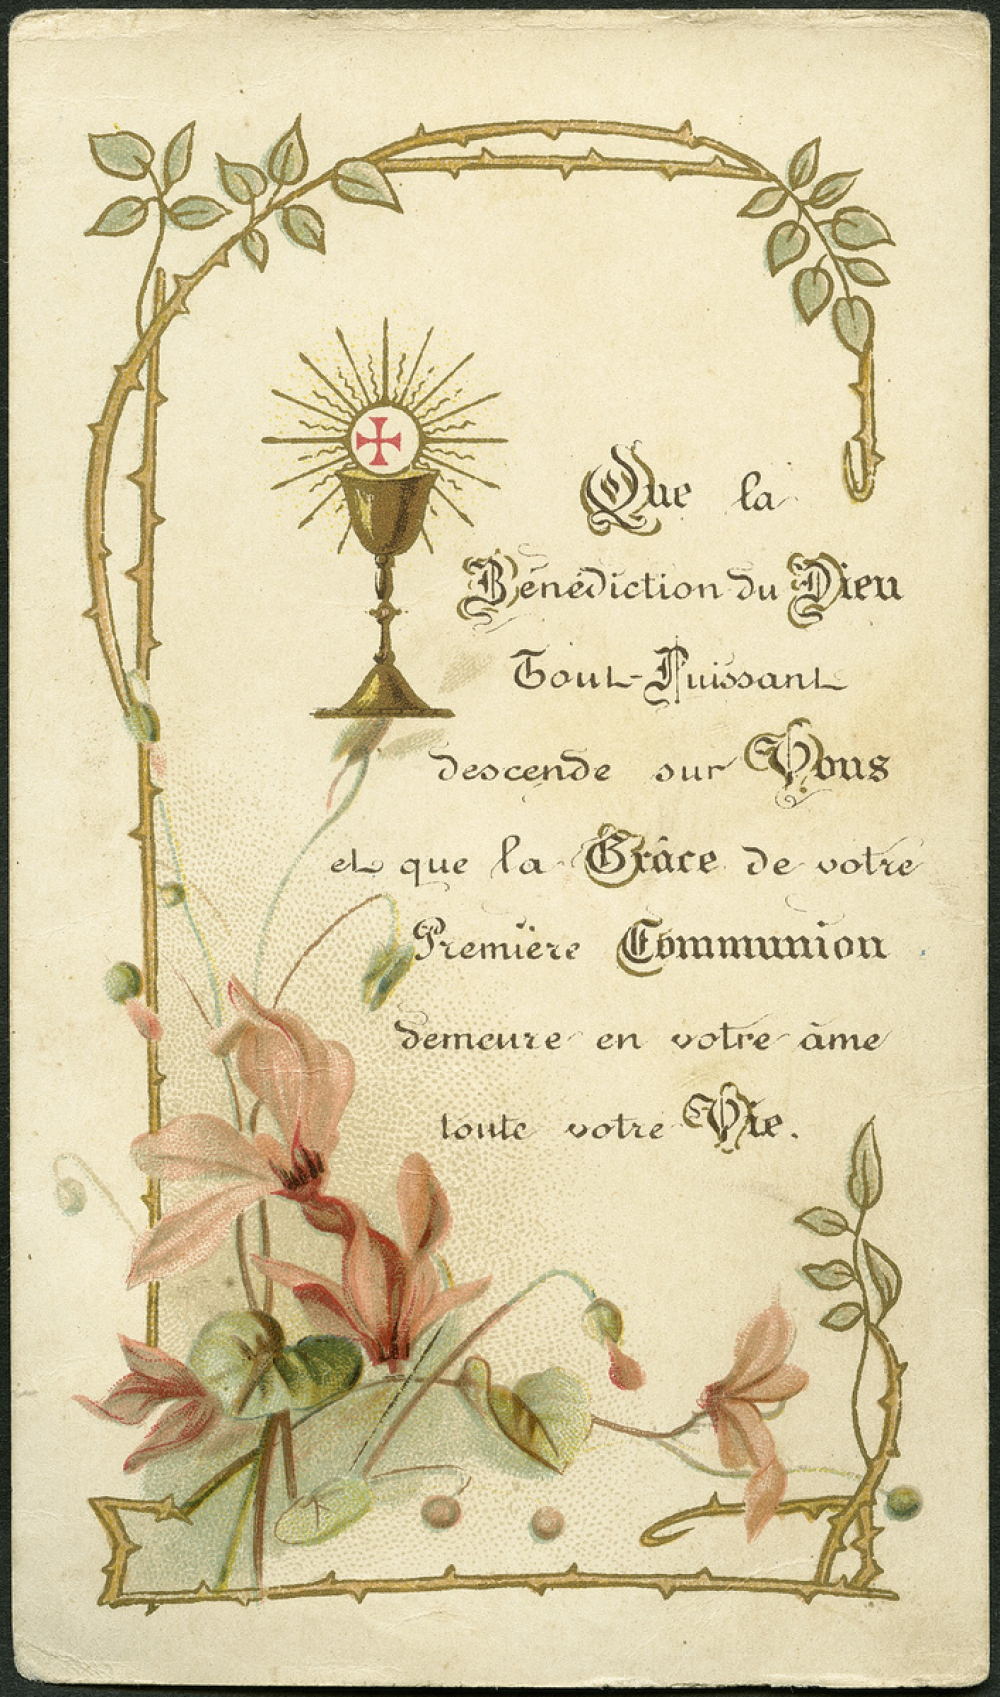 Que la
Bénédiction du Dieu
Tout-Puissant
descende sur Vous
et que la Grâce de votre
Première Communion
demeure en votre âme
toute votre Vie.